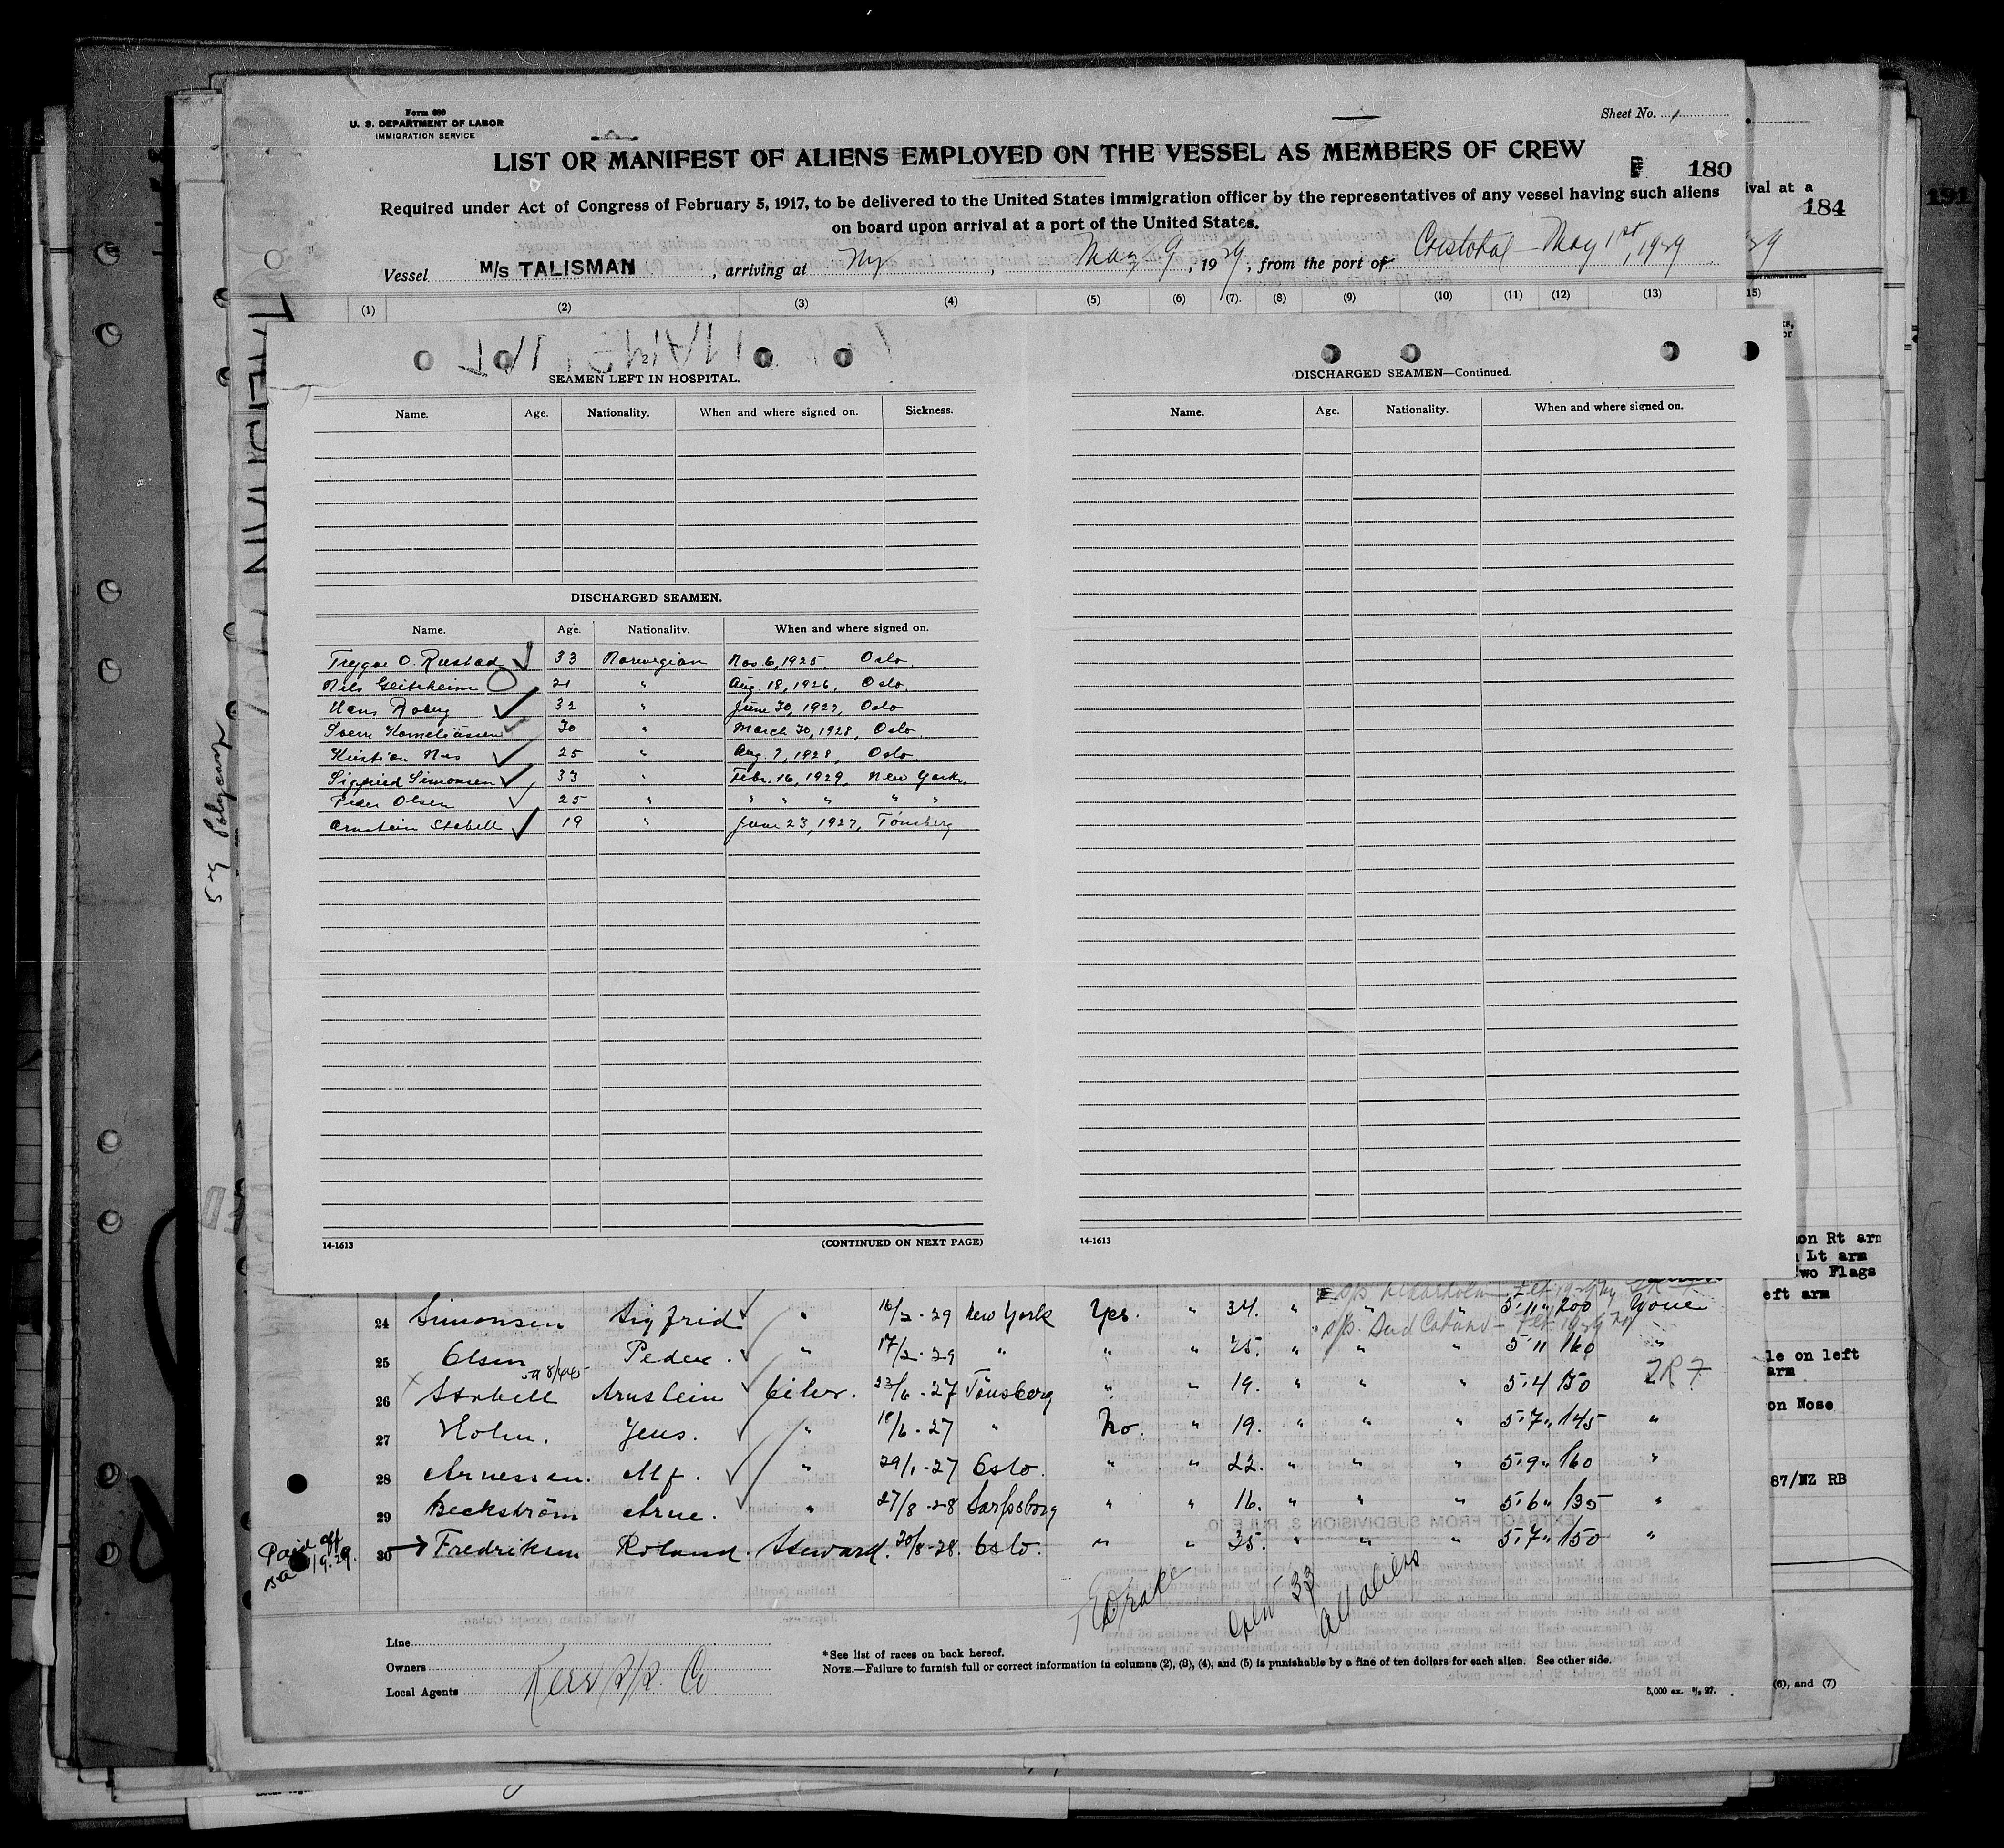 Form 680
U. S. DEPARTMENT OF LABOR
IMMIGRATION SERVICE
Sheet No. 1
LIST OR MANIFEST OF ALIENS EMPLOYED ON THE VESSEL AS MEMBERS OF CREW
180
Required under Act of Congress of February 5, 1917, to be delivered to the United States immigration officer by the representatives of any vessel having such aliens
on board upon arrival at a port of the United States.
ival at a
184
191
Vessel M/S TALISMAN, arriving at Ny, May 9, 1929, from the port of Cristobal May 1st, 1929
(1) (2) (3) (4) (5) (6) (7). (8) (9) (10) (11) (12) (13) 15)
2
SEAMEN LEFT IN HOSPITAL.
Name. Age. Nationality. When and where signed on. Sickness.
DISCHARGED SEAMEN.
Name. Age. Nationality. When and where signed on.
Trygve O. Rustad 33 Norwegian Nov. 6, 1925. Oslo.
Nils 21 " Aug. 18, 1926, Oslo.
Hans Roberg 32 " June 30, 1927, Oslo
Sverre 30 " March 30, 1928, Oslo
Kristian Nes 25 " Aug. 7, 1928, Oslo
Sigfried Simonsen 33 " Febr. 16, 1929, New York.
Peder Olsen 25 " " " " " "
Arnstein Stabell 19 " June 23, 1927, Tönsberg
14-1613 (CONTINUED ON NEXT PAGE)
DISCHARGED SEAMEN—Continued.
Name. Age. Nationality. When and where signed on.
14-1613
on Rt arm
Lt arm
wo Flags
eft arm
le on left
arm
on Nose
87/NZ RB
(6), and (7)
24 Simonsen Sigfrid " 16/2-29 New York Yes. " 34. " 5'11" 200 None
25 Olsen Peder. " 17/2-29 " " " 25. " " " 5'11 160 "
26 Stabell Arnstein Oiler. 23/6-27 Tönsberg " " 19. " " " 5'4 150
27 Holm. Jens. " 18/6-27 " No. " 19. " " " 5'7" 145 "
28 Arnessen. Alf. " 29/1-27 Oslo. " " 22. " " " 5'9" 160 "
29 Beckström Arne. " 27/8-28 Sarpsborg " " 16. " " " 5'6" 135 "
Paid off
30 Fredriksen Roland. Steward. 30/8-28. Oslo. " " 35. " " " 5'7" 150 "
Crew 33
all aliens
Line
Owners
Local Agents Kerr S/S. Co
*See list of races on back hereof.
NOTE.—Failure to furnish full or correct information in columns (2), (3), (4), and (5) is punishable by a fine of ten dollars for each alien. See other side.